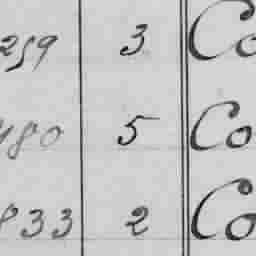 259 3 Co
480 5 Co
833 2 Co